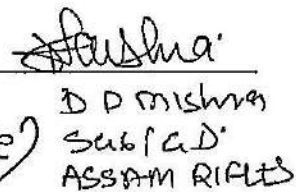 D D Mishra
Sub/GD
ASSAM RIFLES